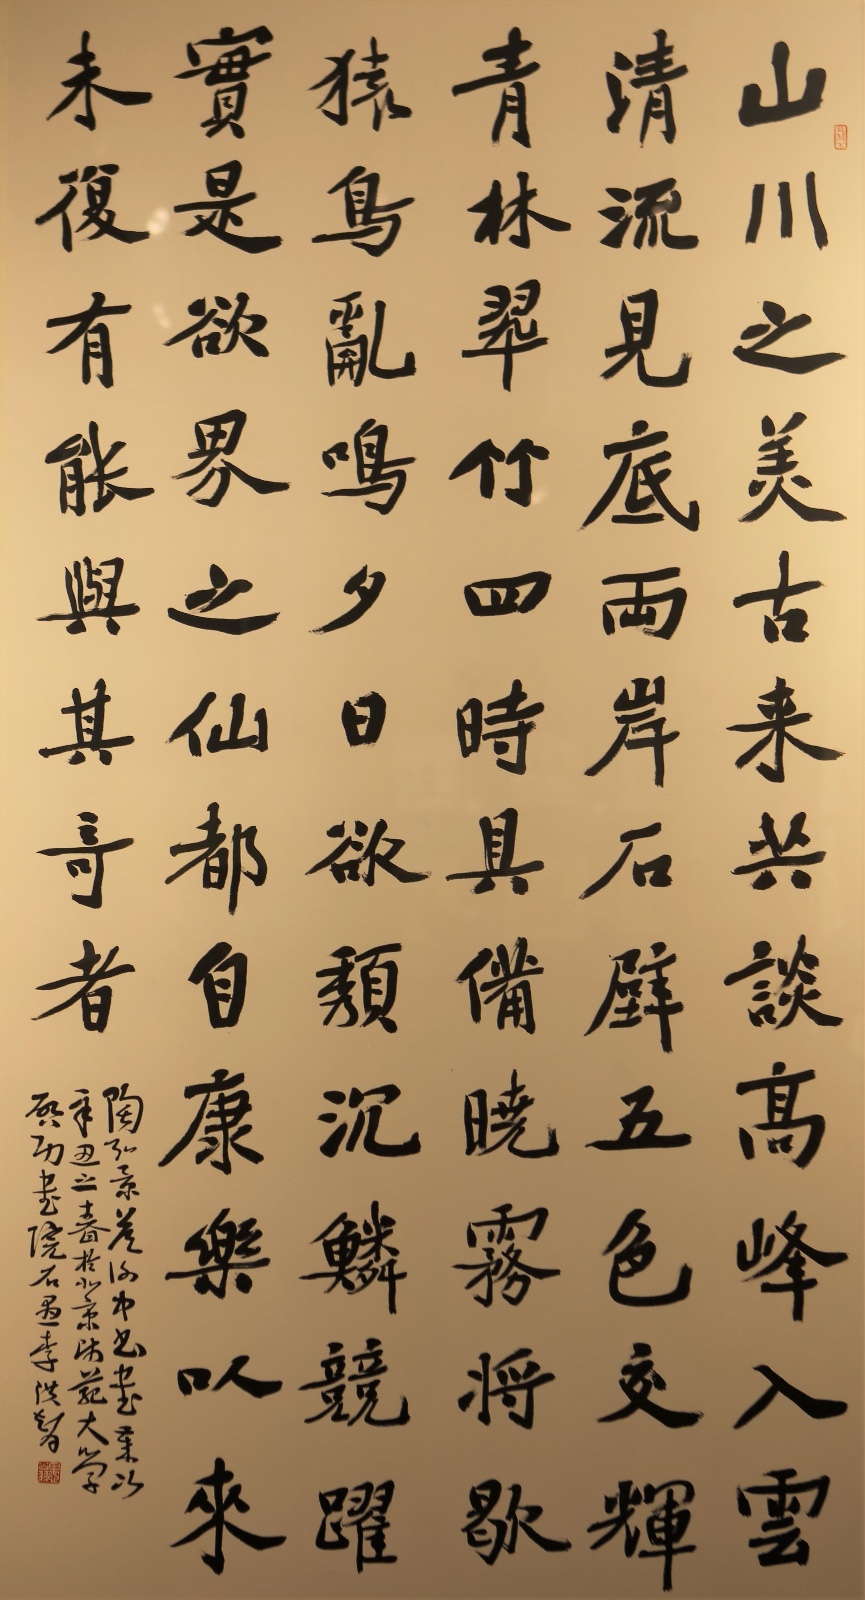 山川之美古来共談高峰入雲
清流見底兩岸石壁五色交輝
青林翠竹四時具備曉霧将歇
猿鳥亂鳴夕日欲頹沉鱗競躍
實是欲界之仙都自康樂以來
未復有能與其奇者
陶弘景答謝中書書葉以
辛丑之春於北京师範大学
啟功書院石愚李洪智